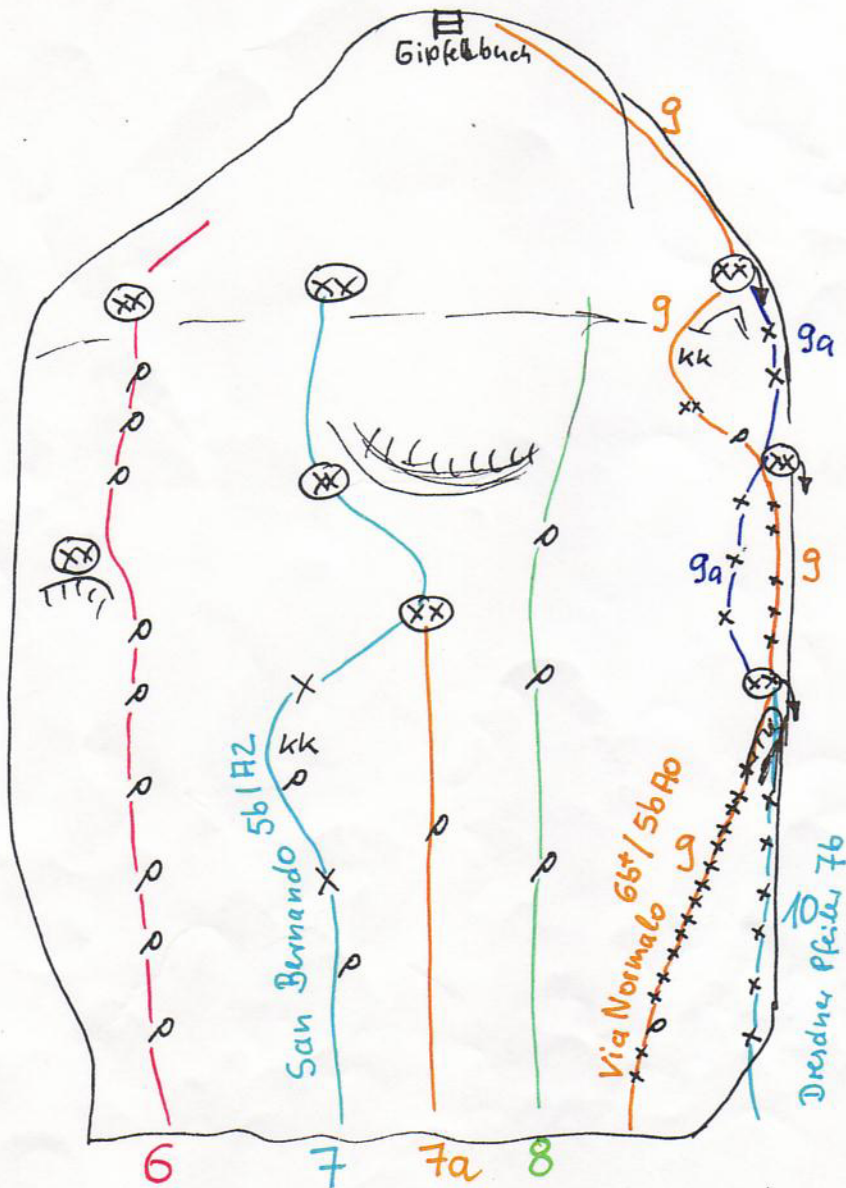 Gipfelbuch
9
9
kk
9a
9a
9
kk
San Bernando 5b/A2
Via Normalo 6b+/5b A0
9
10
Dresdner Pfeiler 7b
6
7
7a
8